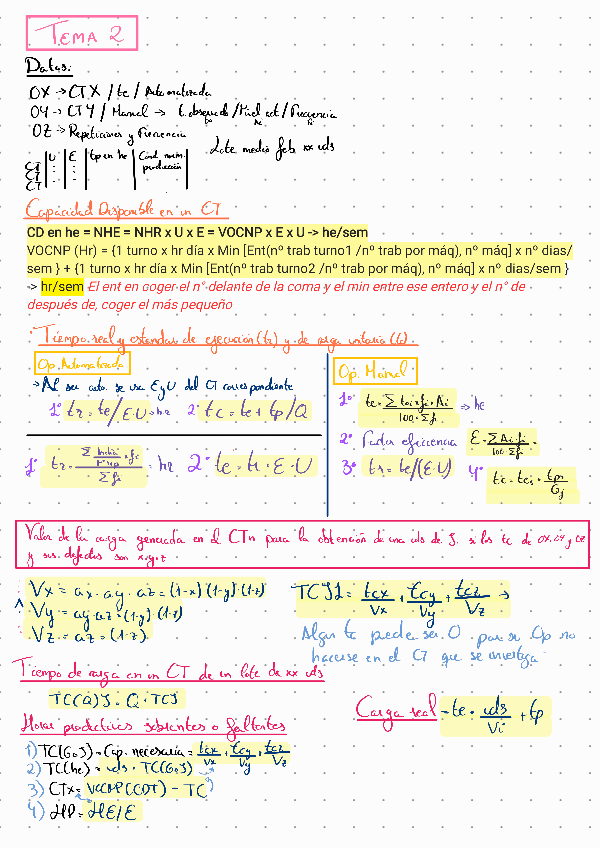 TEMA 2
Datos:
OX → CTX / te / Automatizada
OY → CTY / Manual → t. observado / Nivel act / Frecuencia
OZ → Repeticiones y Frecuencia
Lote medio fab xx uds
U | E | tp en he | Cant. norm. producción
CT
CT
CT
Capacidad Disponible en un CT
CD en he = NHE = NHR x U x E = VOCNP x E x U -> he/sem
VOCNP (Hr) = {1 turno x hr día x Min [Ent(nº trab turno1 /nº trab por máq), nº máq] x nº dias/
sem } + {1 turno x hr día x Min [Ent(nº trab turno2 /nº trab por máq), nº máq] x nº dias/sem }
-> hr/sem El ent en coger el nº delante de la coma y el min entre ese entero y el nº de
después de, coger el más pequeño
Tiempo real y estandar de ejecución (tr) y de carga unitaria (tc).
Op. Automatizada
→ Al ser auto. se usa E y U del CT correspondiente
1º tr = te/E·U → hr 2º tc = te + tp/Q
1º tr = = hr 2º te = tr · E · U
Op. Manual
1º te = → he
2º Factor eficiencia E =
3º tr = te/(E·U) 4º
Valor de la carga generada en el CTn para la obtención de una uds de J. si los tc de OX, OY y OZ
y sus defectos son x, y, z
Vx = ax · ay · az = (1-x)(1-y)(1-z)
Vy = ay · az = (1-y)(1-z)
Vz = az = (1-z)
TCJ1 = tcx/Vx + tcy/Vy + tcz/Vz →
Algun tc puede ser 0 por su Op no
hacerse en el CT que se investiga
Tiempo de carga en un CT de un lote de xx uds
TC(Q)J = Q · TCJ
Carga real = te · uds/Vi + tp
Horas productivas sobrantes o faltantes
1) = Cap. necesaria = tcx/Vx + tcy/Vy + tcz/Vz
2) TC(he) = uds ·
3) CTx = VOCNP(CDT) - TC
4) HP = HE/E